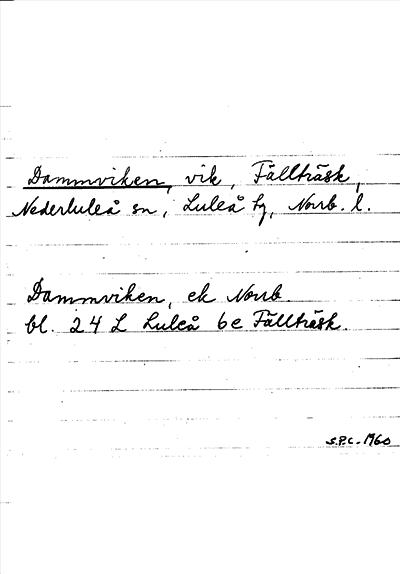 Dammviken, vik, Fällträsk,
Nederluleå sn, Luleå tg, Norrb. l.
Dammviken, ek Norrb.
bl. 24 L Luleå 6e Fällträsk.
S.P.C. 1960